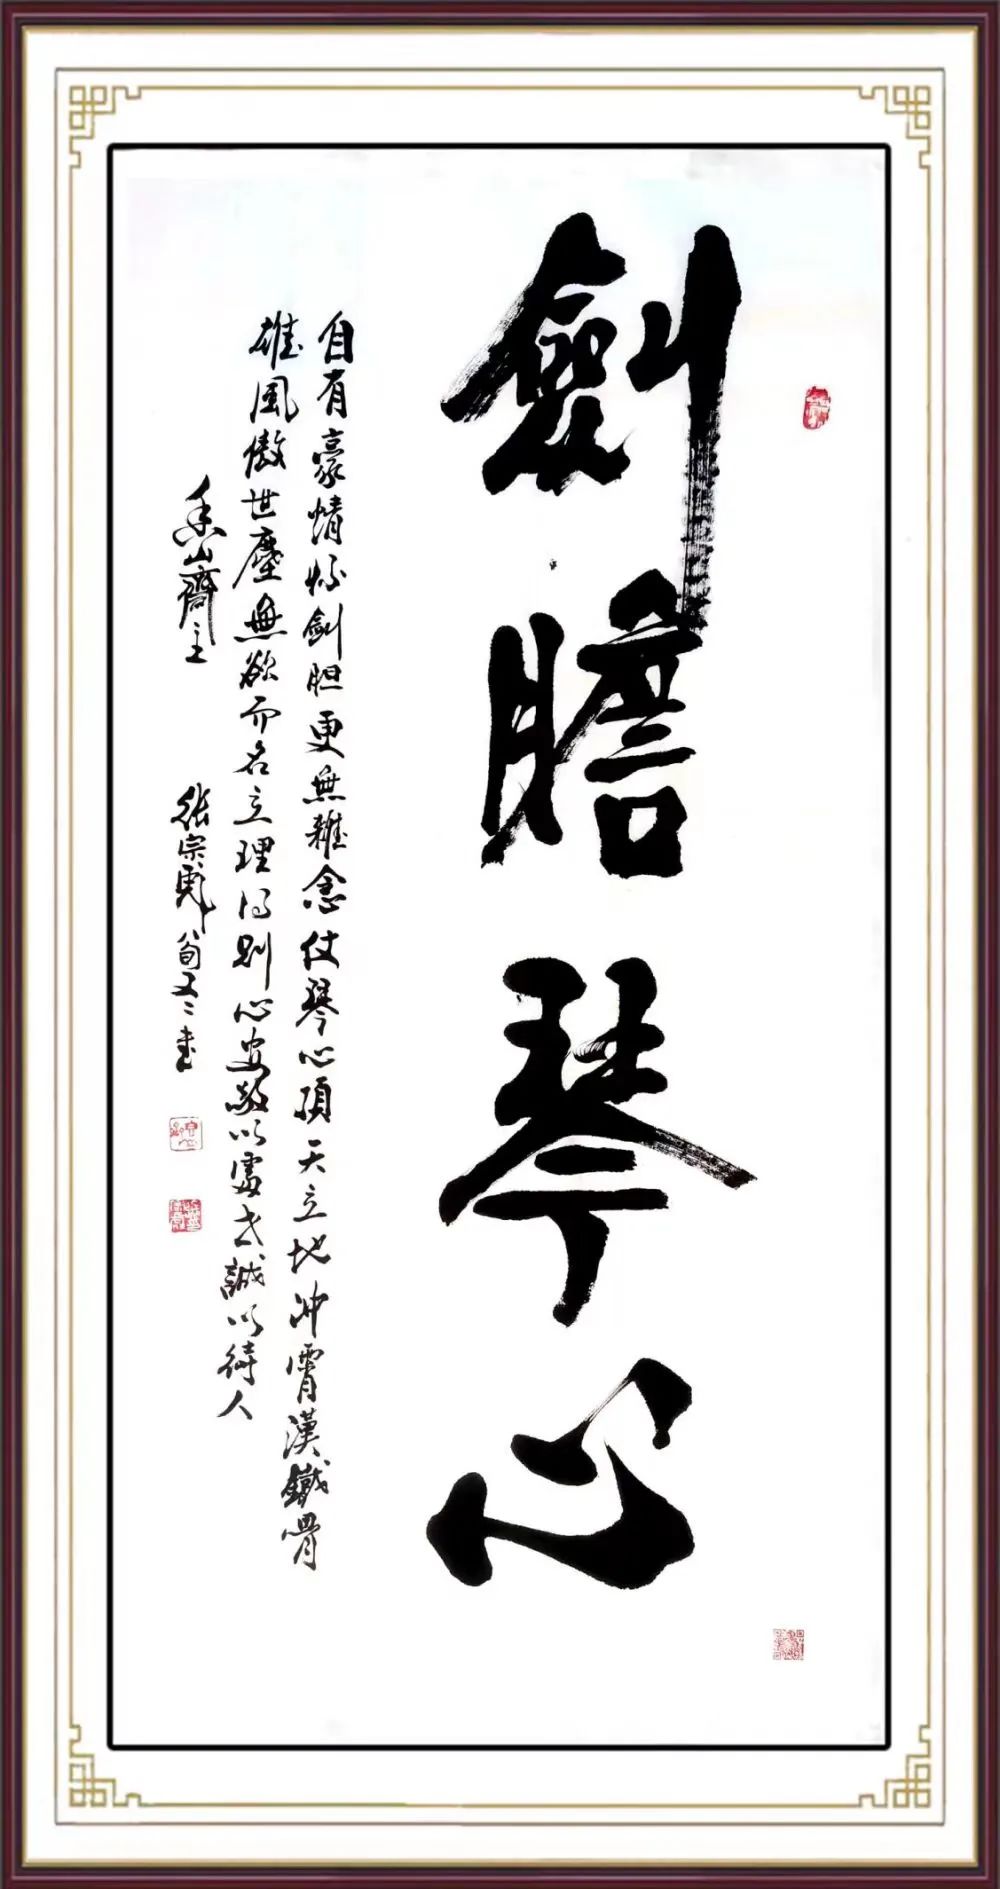 劍膽琴心
自有豪情怀劍胆更無雜念仗琴心頂天立地冲霄漢鐵骨
雄風傲世塵無欲而名立理得則心安敬以處世誠以待人
香山齋主
張宗彪
書